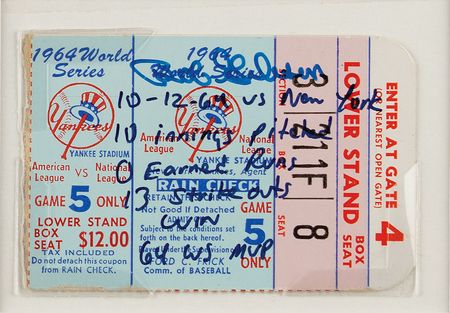 1964 World
Series
Yankees
YANKEE STADIUM
American
League
VS
National
League
GAME 5 ONLY
LOWER STAND
BOX
SEAT
$12.00
TAX INCLUDED
Do not detach this coupon
from RAIN CHECK.
1964
World Series
Yankees
YANKEE STADIUM
American
League
National
League
RAIN CHECK
Not Good if Detached
Subject to the conditions
set forth on the back hereof.
GAME
5
ONLY
FORD C. FRICK
Comm. of BASEBALL
10-12-64 vs New York
10 innings pitched
0 Earned Runs
13 Strikeouts
WIN
64 WS MVP
SECTION
3
11F
8
SEAT
LOWER STAND
BOX
SEAT
ENTER AT GATE
(OR NEAREST OPEN GATE)
4